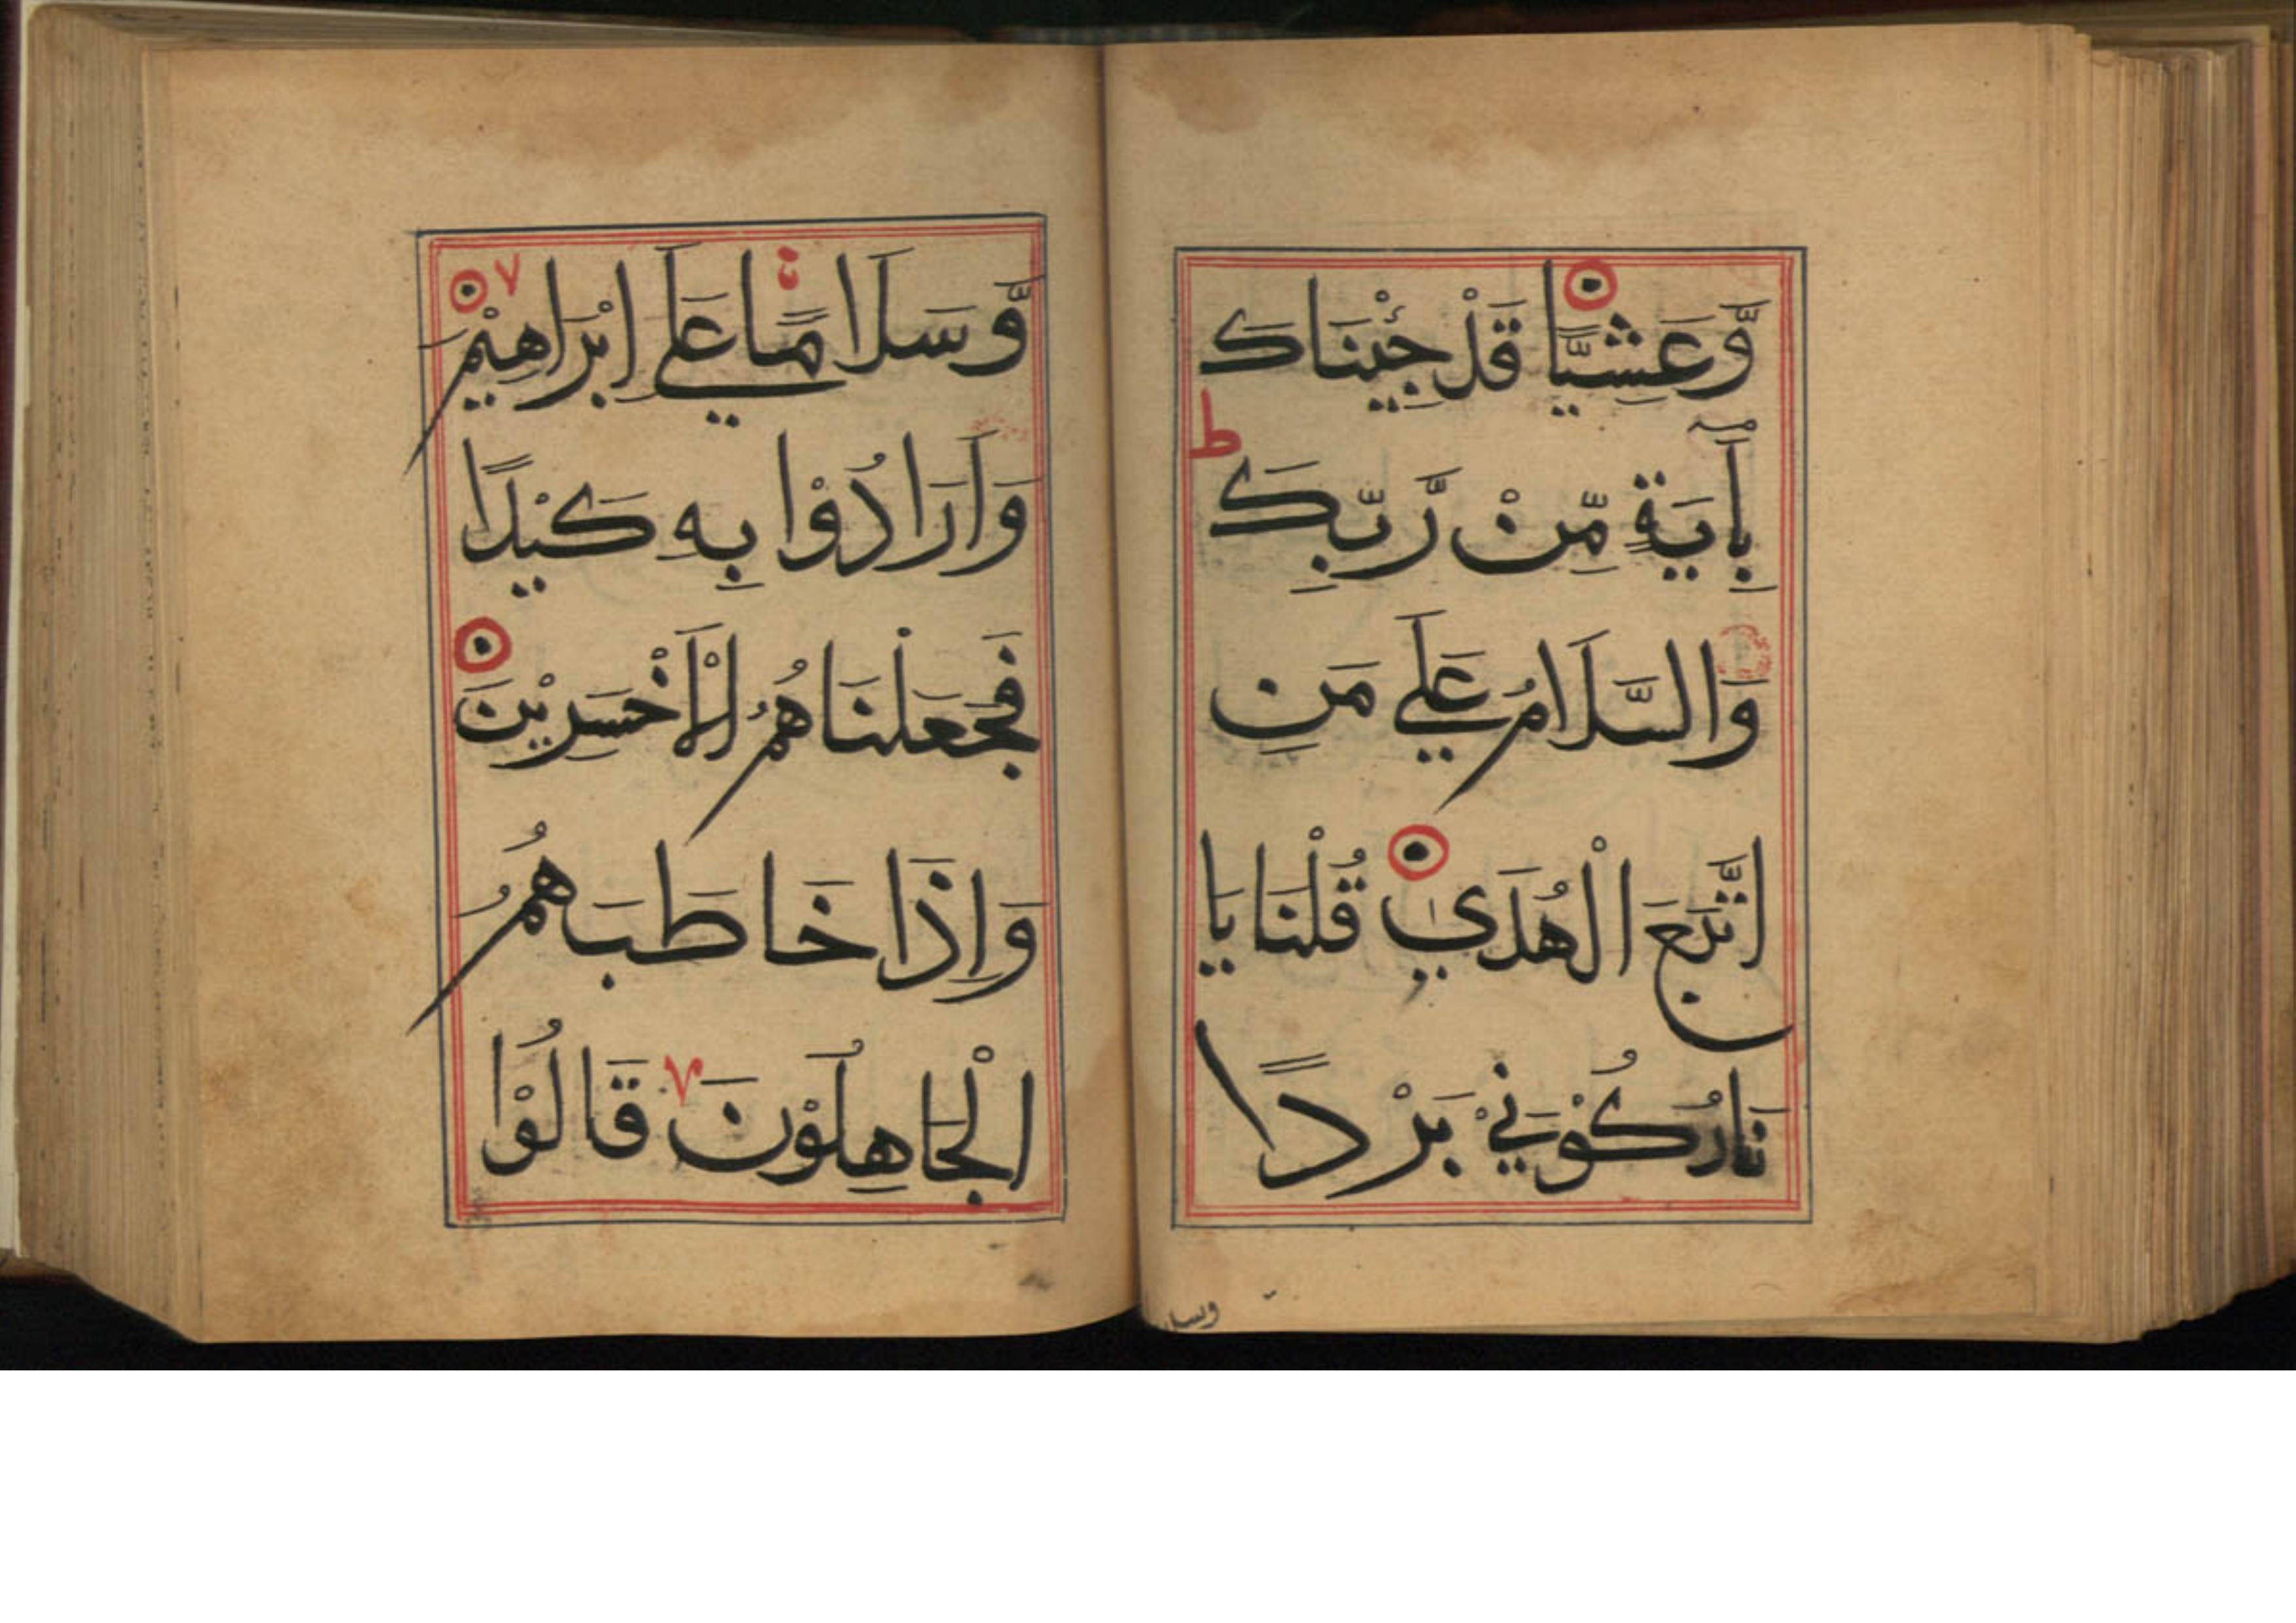 وَّعَشِيًّا قَدْ جِئْنَاكَ
بِأٓيَةٍ مِّنْ رَّبِّكَ ط
وَالسَّلَامُ عَلَي مَنِ
اتَّبَعَ الْهُدَي قُلْنَا يَا
نَارُ كُوْنِيْ بَرْدًا
وسلا
وَّسَلَامًا عَلَي اِبْرَاهِيْمَ ٧
وَاَرَادُوْا بِهِ كَيْدًا
فَجَعَلْنَاهُمُ الْاَخْسَرِيْنَ
وَاِذَا خَاطَبَهُمُ
الْجَاهِلُوْنَ ٧ قَالُوْا